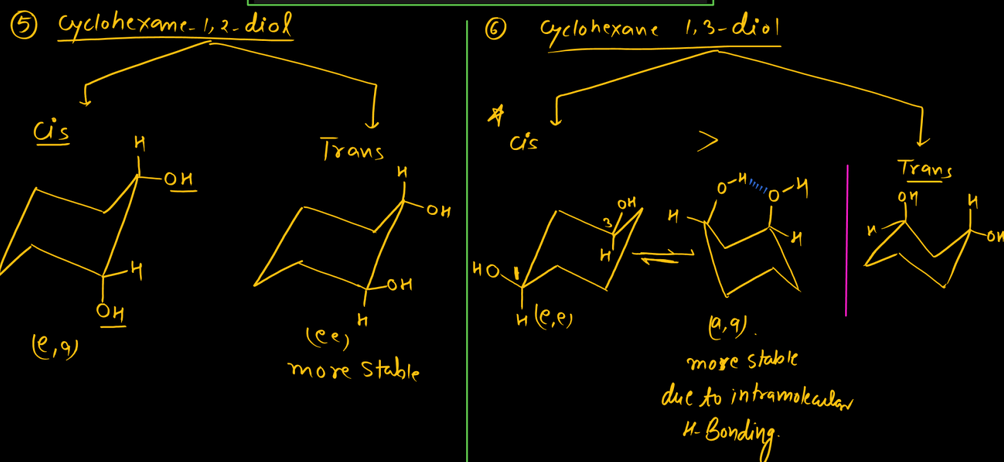 ⑤ Cyclohexane-1,2-diol
Cis
Trans
H
OH
H
OH
(e,a)
H
OH
OH
H
(ee)
more stable
⑥ Cyclohexane 1,3-diol
* Cis
>
Trans
OH
3
H
HO
1
H
(e,e)
O-H
O-H
H
H
(a,a).
more stable
due to intramolecular
H-Bonding.
OH
H
H
OH